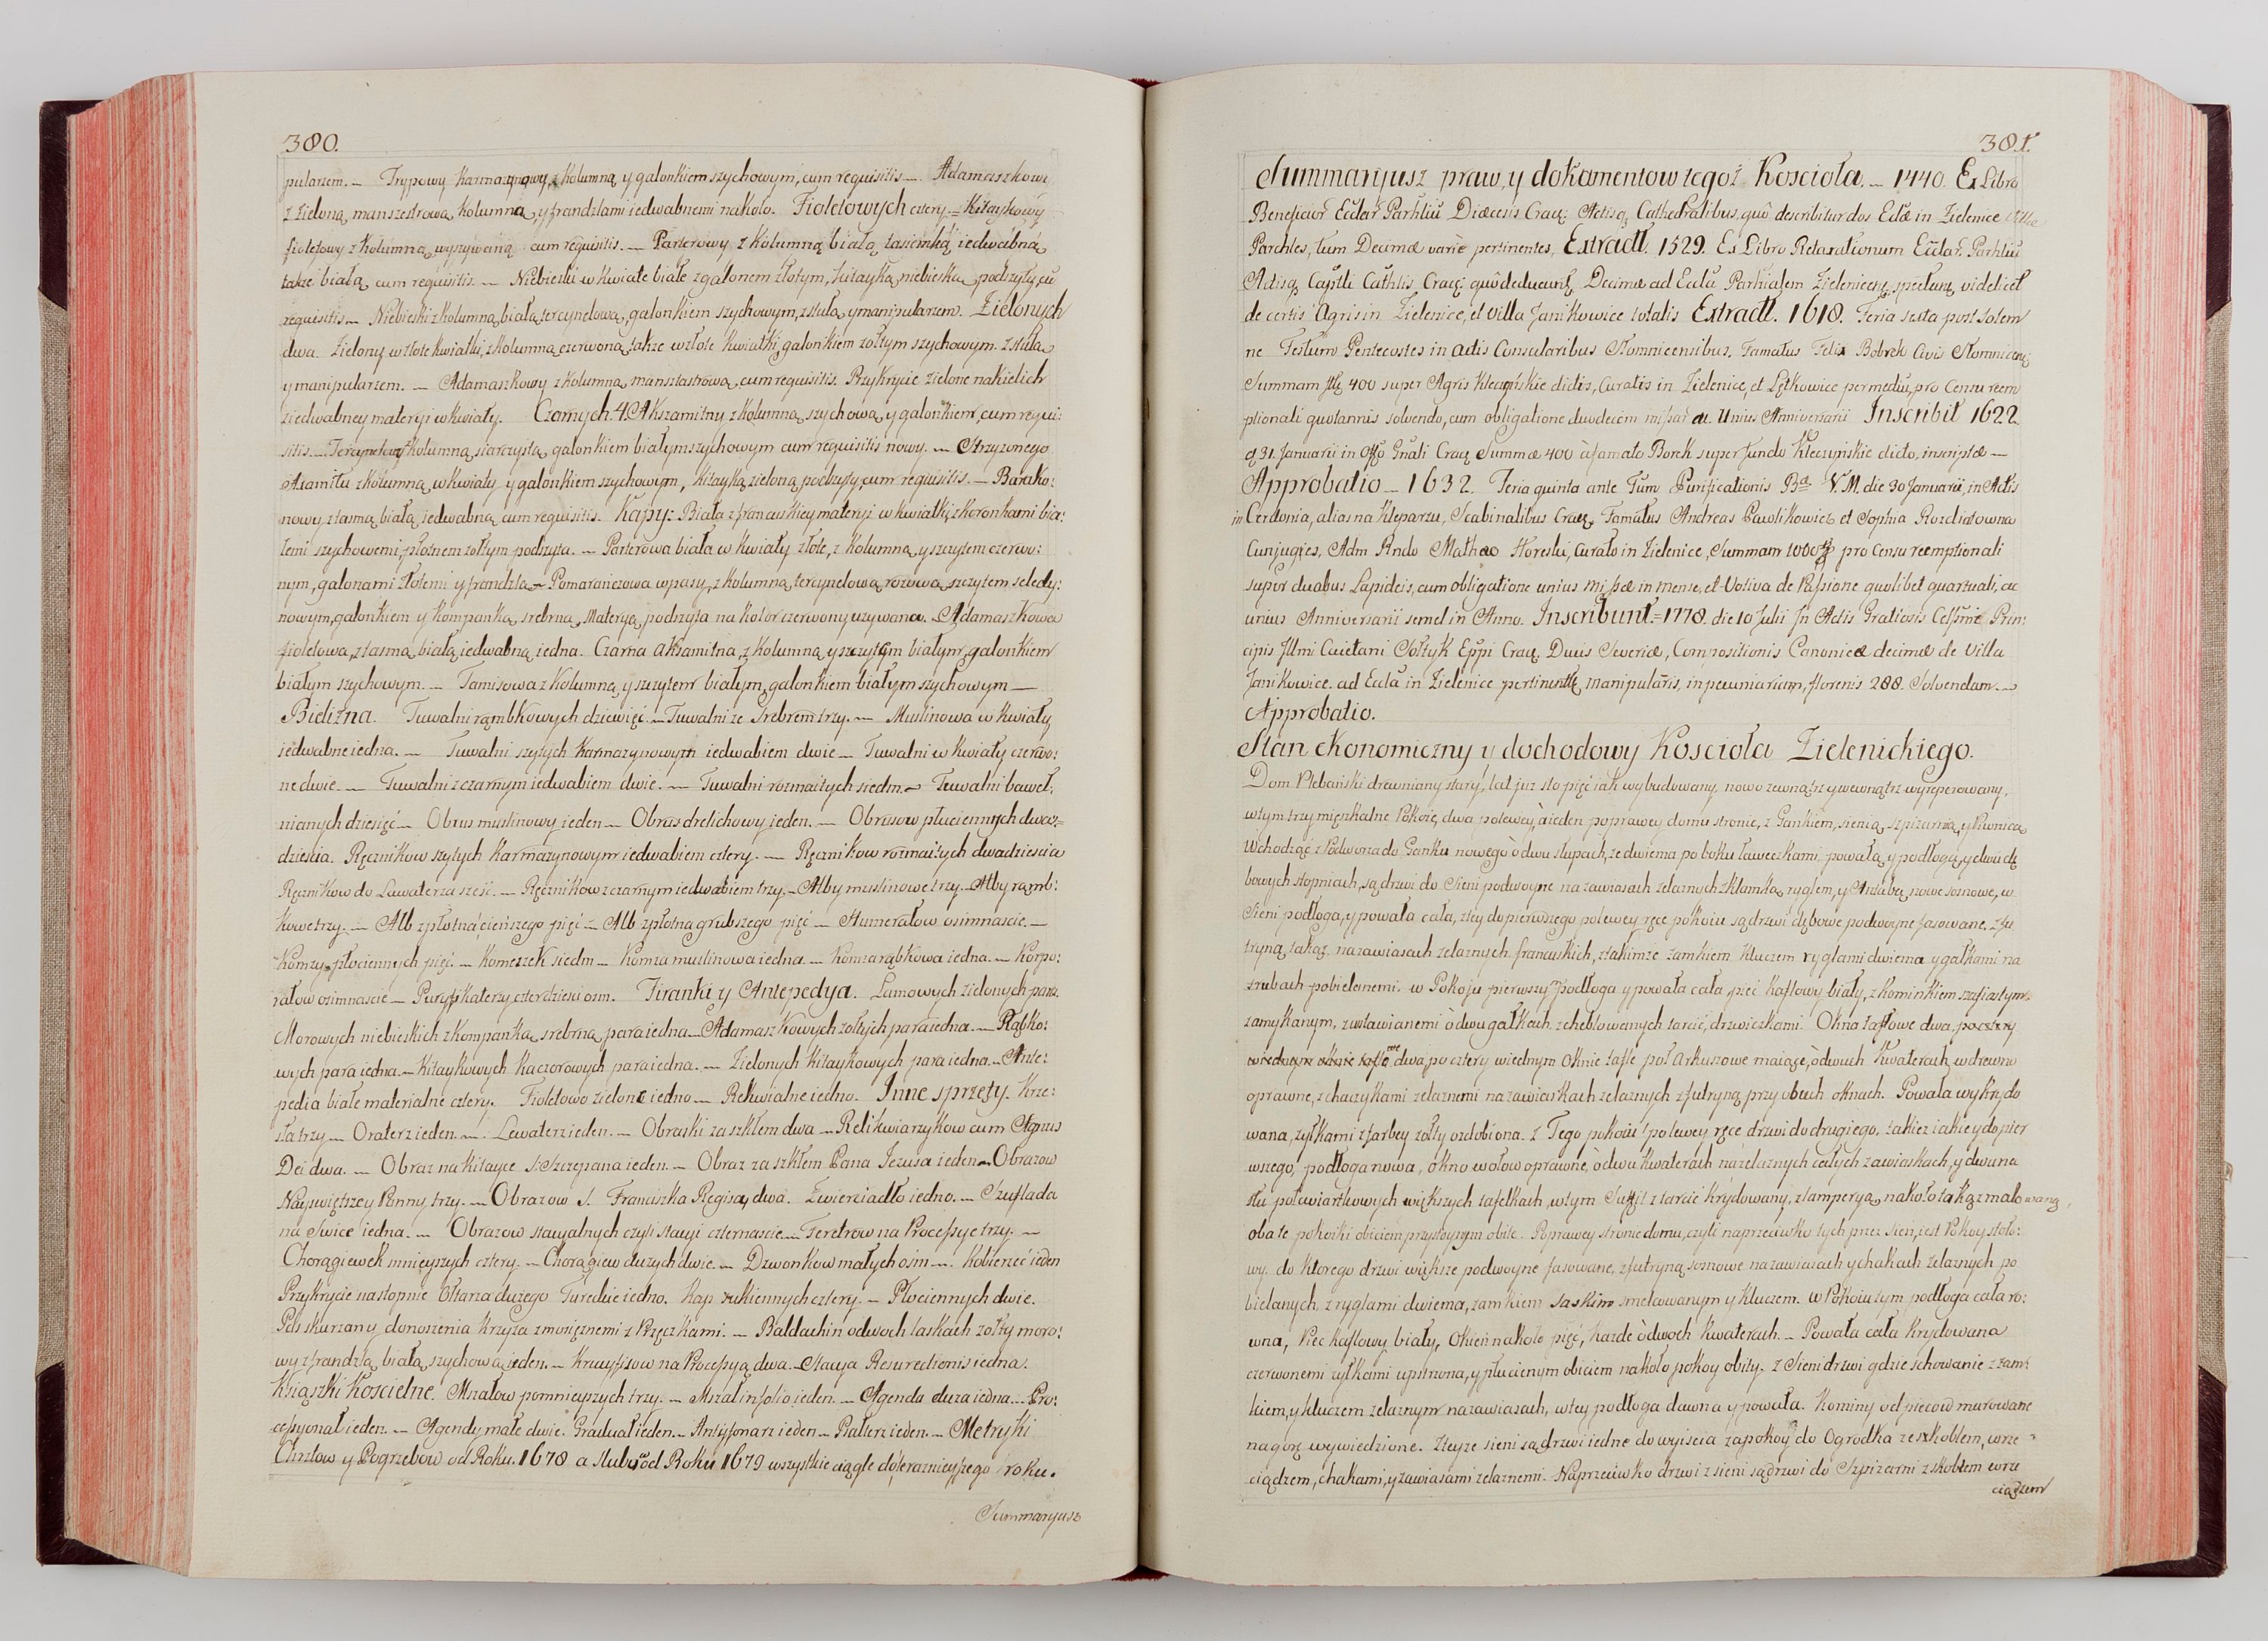 380.
pularzem. — Trypowy Karmazynowy z kolumną y galonkiem szychowym, cum requisitis — Adamaszkowy
z zieloną manszestrową kolumną y frandzlami iedwabnemi nakoło. Fioletowych cztery. = Kitaykowy
fioletowy z kolumną wyszywaną cum requisitis. — Parterowy z kolumną białą tasiemką iedwabną
także białą cum requisitis. — Niebieski w kwiate białe z galonem złotym, kitayką niebieską podszyty, cū
requisitis — Niebieski z kolumną białą tercynelową, galonkiem szychowym, z stułą y manipularzem. Zielonych
dwa. Zielony w złote kwiatki, z kolumną czerwoną także w złote kwiatki, galonkiem żołtym szychowym. z stułą
y manipularzem. — Adamaszkowy z kolumną mansztastrową cum requisitis. Przykrycie zielone na kielich
z iedwabney materyi w kwiaty. Czarnych. 4. Akszamitny z kolumną szychową, y galonkiem, cum requi:
sitis. — Tercynelowy z kolumną siarczystą galonkiem białym szychowym cum requisitis nowy. — Strzyżonego
Axamitu z kolumną w kwiaty y galonkiem szychowym, kitayką zieloną podszyty, cum requisitis. — Barako:
nowy z tasmą białą iedwabną cum requisitis. Kapy: Biała z francuskiey materyi w kwiatki, z koronkami bia:
łemi szychowemi, płotnem żołtym podszyta. — Parterowa biała w kwiaty złote, z kolumną y szczytem czerwo:
nym, galonami złotemi y frandzlą — Pomaranczowa w pasy, z kolumną tercynelową rożową szczytem seledy:
nowym, galonkiem y kompanką srebrną, Materyą podszyta na kolor czerwony używana. — Adamaszkowa
fioletowa, z tasmą białą iedwabną iedna. Czarna aksamitna, z kolumną y szczytem białym, galonkiem
białym szychowym. — Tamisowa z kolumną y szczytem białym, galonkiem białym szychowym —
Bielizna. Tuwalni rąmbkowych dziewięć. — Tuwalni ze srebrem trzy. — Muslinowa w kwiaty
iedwabne iedna. — Tuwalni szytych karmazynowym iedwabiem dwie — Tuwalni w kwiaty czerwo:
ne dwie. — Tuwalni z czarnym iedwabiem dwie. — Tuwalni rozmaitych siedm. — Tuwalni baweł:
nianych dziesięć — Obrus muslinowy ieden — Obrus drelichowy ieden. — Obrusow płuciennych dwa:
dziescia. Ręcznikow szytych karmazynowym iedwabiem cztery. — Ręcznikow rozmaitych dwadziescia
Ręcznikow do Lawaterza szesć. — Ręcznikow z czarnym iedwabiem trzy. — Alby muslinowe trzy. — Alby ramb:
kowe trzy. — Alb z płotna cieńszego pięć — Alb z płotna grubszego pięć — Humerałow osimnascie. —
Komzy płociennych pięć. — Komeszek siedm — Komza muslinowa iedna. — Komza rąbkowa iedna. — Korpo:
rałow osimnascie — Puryfikaterzy czterdziesci osm. Firanki y Antepedya. Lamowych zielonych para.
Morowych niebieskich z kompanką srebrną para iedna — Adamaszkowych żołtych para iedna. — Rąbko:
wych para iedna. — Kitaykowych kaczorowych para iedna. — Zielonych kitaykowych para iedna. — Ante:
pedia białe materialne cztery. Fioletowo zielone iedno — Rekwialne iedno. Inne sprzęty. Krze:
sła trzy — Oraterz ieden. — Lewaterz ieden. — Obraski za szkłem dwa — Relikwiarzykow cum Agnus
Dei dwa. — Obraz na kitayce S. Szczepana ieden. — Obraz za szkłem Pana Jezusa ieden — Obrazow
Nayswiętszey Panny trzy. — Obrazow S. Franciszka Regisa, dwa. Zwierciadło iedno. — Szuflada
na Swice iedna. — Obrazow stacyalnych czyli stacyi czternascie — Feretrow na Processye trzy. —
Chorągiewek mnieyszych cztery. — Chorągiew dużych dwie. — Dzwonkow małych osm —. Kobierzec ieden
Przykrycie na stopnie Ołtarza dużego Tureckie iedno. Kap sukiennych cztery. — Płociennych dwie.
Pas skurzany do noszenia krzyża z mosiężnemi sprzęczkami. — Baldachin o dwoch laskach żołty moro:
wy z frandzlą białą szychową ieden. — Krucyfixow na Processyą dwa. — Stacya Resurectionis iedna.
Ksiąszki Koscielne. Mszałow pomnieyszych trzy. — Mszał in folio ieden. — Agenda duża iedna. — Pro:
cessyonał ieden. — Agendy małe dwie. Graduał ieden. — Antyfonarz ieden — Psałterz ieden. — Metryki
Chrztow y Pogrzebow od Roku. 1678 a slubow od Roku 1679 wszystkie ciągle do teraznieyszego roku.
Summaryusz
381.
Summaryusz praw, y dokumentow tegoż Koscioła. — 1440. Ex Libro
Beneficior Ecclar Parhliū Diæcesis Crac: Actisq Cathedralibus, quô describitur dos Eclæ in Zielenice Villæ
Parchles, tum Decimæ variè pertinentes, Extractt. 1529. Ex Libro Retaxationum Ecclar. Parhliū
Actisq Captli Cathlis, Crac: quô deducunt, Decimæ ad Ecclā Parhialem Zielenicen, spectans videlicet
de certis Agris in Zielenice, et villa Janikowice totalis Extractt. 1618. Feria sexta post Solem
ne Festum Pentecostes in actis Consularibus Słomnicensibus. Famatus Felix Bobrek Civis Słomnicen
Summam flł 400 super Agris Kleczyńskie dictis, Curatis in Zielenice, et Lętkowice per mediū, pro Censu reem
ptionali quotannis solvendo, cum obligatione duodecem missar ac Unius Anniversarii Inscribit 1622
d 31. Januarii in Offo Gnali Crac Summæ 400 à famato Borek super fundo Kleczyńskie dicto, inscriptæ —
Approbatio — 1632. Feria quinta ante Tum Purificationis Ba V. M. die 30 Januarii, in Actis
in Cerdonia, alias na Kleparzu, Scabinalibus Crac, Famatus Andreas Pawlikowicz et Sophia Rozdiatowna
Cunjuges, Adm Rndo Mathæo Horeski, Curato in Zielenice, Summam 1000 pro Censu reemptionali
super duabus Lapideis, cum obligatione unius Missæ in mense, et Votiva de Passione quolibet quartuali, ac
unius Anniversarii semel in Anno. Inscribunt. = 1778. die 10 Julii In Actis Gratiosis Celssmi Prin:
cipis Illmi Caietani Sołtyk Eppi Crac, Ducis Severiæ, Compositionis Canonicæ decimæ de Villa
Janikowice. ad Ecclā in Zielenice pertinentis, manipularis, in pecuniariam, florenis 288. Solvendam. —
Approbatio.
Stan ekonomiczny y dochodowy Koscioła Zielenickiego.
Dom Plebański drewniany stary, lat już sto pięć iak wybudowany, nowo zewnątrz y wewnątrz wyreperowany,
w tym trzy mięszkalne Pokoie, dwa po lewey, à ieden po prawey domu stronie, z Gankiem, sienią, szpiżarnią, y Piwnicą
Wchodząc z Podworza do Ganku nowego ò dwu słupach, ze dwiema po boku ławeczkami, powałą y podłogą, y dwu dę
bowych stopniach, są drzwi do Sieni podwoyne na zawiasach żelaznych z klamką, ryglem, y Antabą, nowe sosnowe, w
Sieni podłoga, y powała cała, z tey do pierwszego po lewey ręce pokoiu są drzwi dębowe podwoyne fasowane, z fu
tryną takąż, na zawiasach żelaznych francuskich, z takimże zamkiem kluczem ryglami dwiema y gałkami na
srubach pobielanemi. w Pokoju pierwszym podłoga y powała cała, piec kaflowy biały, z kominkiem szafiastym
zamykanym, zustawianemi ò dwu gałkach, z cheblowanych tarcic, drzwiczkami. Okna taflowe dwa, po cztery
w iednym oknie tafle dwa, po cztery w iednym oknie tafle poł arkuszowe maiące, ò dwuch kwaterach, w drewno
oprawne, z haczykami żelaznemi na zawiaskach żelaznych z futryną przy obuch oknach. Powała wykrydo
wana, żyłkami z farbey żołty ozdobiona. Z Tego pokoiu po lewey ręce drzwi do drugiego, takież iakie y do pier
wszego, podłoga nowa, okno w ołow oprawne, ò dwu kwaterach na żelaznych całych zawiaskach, y dwuna
stu połcwiartkowych większych tafelkach, w tym Suffit z tarcic krydowany, z lamperyą nakoło takąż malowaną,
oba te pokoiki obiciem przystoynym obite. Po prawey stronie domu, czyli naprzeciwko tych przez sień, iest Pokoy stoło:
wy. do ktorego drzwi większe podwoyne fasowane, z futryną sosnowe na zawiasach y hakach żelaznych po
bielanych, z ryglami dwiema, zamkiem saskim smelcowanym y kluczem. w Pokoiu tym podłoga cała ro:
wna, Piec kaflowy biały, Okien nakoło pięć, każde ò dwoch kwaterach. — Powała cała krydowana
czerwonemi żyłkami upstrzona, y płuciennym obiciem nakoło pokoy obity. Z Sieni drzwi gdzie schowanie z zam:
kiem, y kluczem żelaznym na zawiasach, w tey podłoga dawna y powała. Kominy od piecow murowane
na gorę wywiedzione. Z teyże sieni są drzwi iedne do wyiscia za pokoy do Ogrodka ze skoblem, wrze
ciądzem, hakami, y zawiasami żelaznemi. Naprzeciwko drzwi z sieni są drzwi do Szpiżarni z skoblem wrze
ciądzem